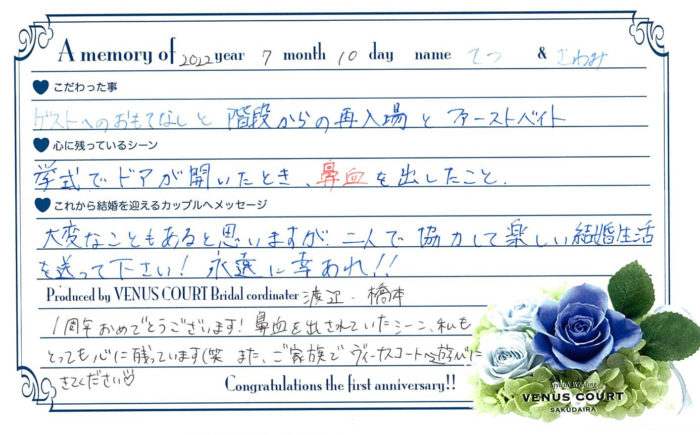 A memory of 2022 year 7 month 10 day name てつ & さわみ
こだわった事
ゲストへのおもてなしと 階段からの再入場と ファーストバイト
心に残っているシーン
挙式でドアが開いたとき、鼻血を出したこと.
これから結婚を迎えるカップルへメッセージ
大変なこともあると思いますが、二人で協力して楽しい結婚生活
を送って下さい! 永遠に幸あれ!!
Produced by VENUS COURT Bridal cordinater 渡辺・橋本
1周年おめでとうございます! 鼻血を出されていたシーン、私も
とっても心に残っています(笑 また、ご家族で ヴィーナスコートへ遊びに
きてください♡
Congratulations the first anniversary!!
Wedding
VENUS COURT
SAKUDAIRA